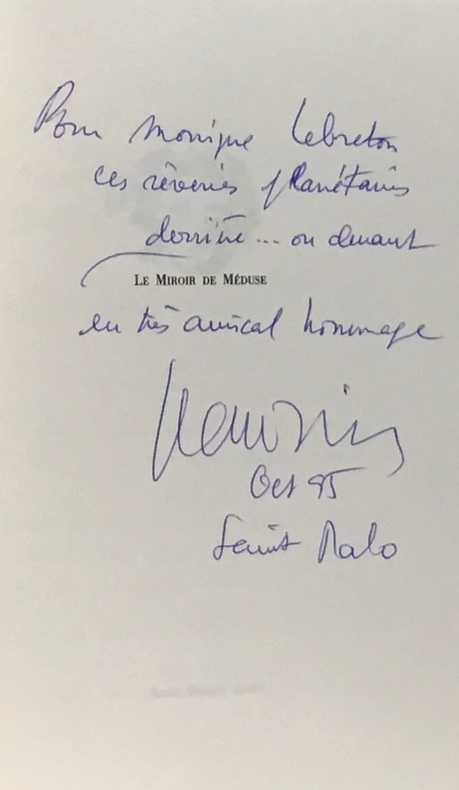 Pour Monique Lebreton
ces rêveries planétaires
derrière... ou devant
LE MIROIR DE MÉDUSE
en très amical hommage
Oct 95
Saint Malo